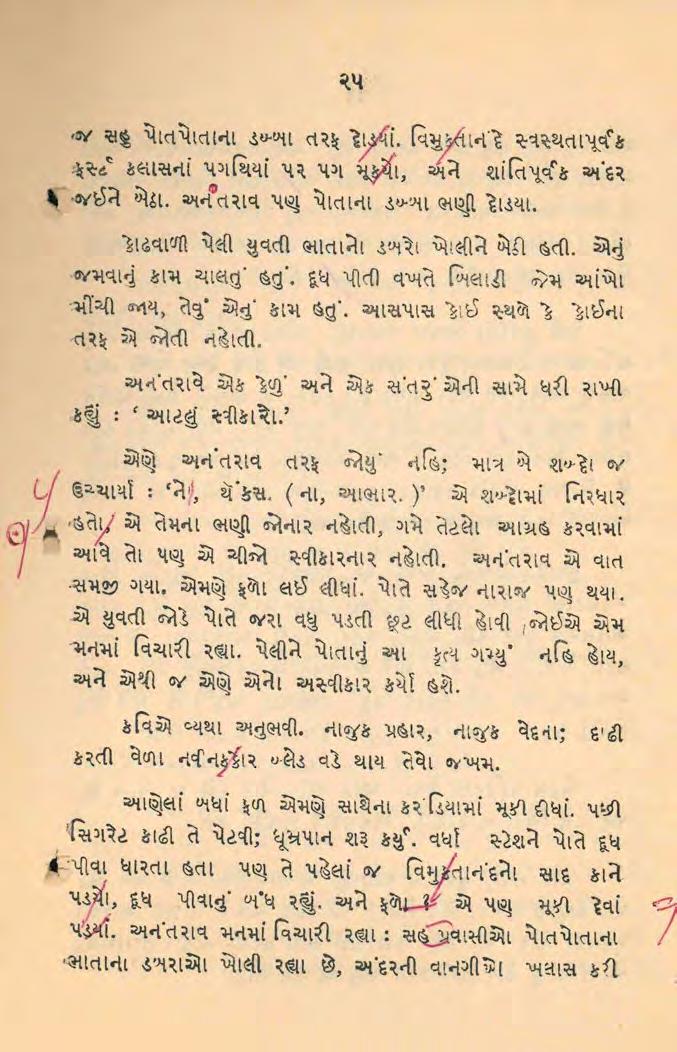 ૨૫
જ સહુ પોતપોતાના ડબ્બા તરફ દોડ્યાં. વિમુક્તાનંદે સ્વસ્થતાપૂર્વક
ફર્સ્ટ કલાસનાં પગથિયાં પર પગ મૂક્યો, અને શાંતિપૂર્વક અંદર
જઈને બેઠા. અનંતરાવ પણ પોતાના ડબ્બા ભણી દોડયા.
કોઢવાળી પેલી યુવતી ભાતાનો ડબરો ખોલીને બેઠી હતી. એનું
જમવાનું કામ ચાલતું હતું. દૂધ પીતી વખતે બિલાડી જેમ આંખો
મીંચી જાય, તેવું એનું કામ હતું. આસપાસ કોઈ સ્થળે કે કોઈના
તરફ એ જોતી નહોતી.
અનંતરાવે એક કેળું અને એક સંતરું એની સામે ધરી રાખી
કહ્યું : ‘ આટલું સ્વીકારો.’
એણે અનંતરાવ તરફ જોયું નહિ; માત્ર બે શબ્દો જ
ઉચ્ચાર્યા : ‘નો, થેંકસ. ( ના, આભાર. )’ એ શબ્દોમાં નિરધાર
હતો, એ તેમના ભણી જોનાર નહોતી, ગમે તેટલો આગ્રહ કરવામાં
આવે તો પણ એ ચીજો સ્વીકારનાર નહોતી. અનંતરાવ એ વાત
સમજી ગયા. એમણે ફળો લઈ લીધાં. પોતે સહેજ નારાજ પણ થયા.
એ યુવતી જોડે પોતે જરા વધુ પડતી છૂટ લીધી હોવી જોઈએ એમ
મનમાં વિચારી રહ્યા. પેલીને પોતાનું આ કૃત્ય ગમ્યું નહિ હોય,
અને એથી જ એણે એનો અસ્વીકાર કર્યો હશે.
કવિએ વ્યથા અનુભવી. નાજુક પ્રહાર, નાજુક વેદના; દાઢી
કરતી વેળા નવીનક્કોર બ્લેડ વડે થાય તેવો જખમ.
આણેલાં બધાં ફળ એમણે સાથેના કરંડિયામાં મૂકી દીધાં. પછી
સિગરેટ કાઢી તે પેટવી; ધૂમ્રપાન શરૂ કર્યું. વર્ધા સ્ટેશને પોતે દૂધ
પીવા ધારતા હતા પણ તે પહેલાં જ વિમુક્તાનંદનો સાદ કાને
પડ્યો, દૂધ પીવાનું બંધ રહ્યું. અને ફળો ? એ પણ મૂકી દેવાં
પડ્યાં. અનંતરાવ મનમાં વિચારી રહ્યા : સહુ પ્રવાસીઓ પોતપોતાના
ભાતાના ડબરાઓ ખોલી રહ્યા છે, અંદરની વાનગીઓ ખલાસ કરી